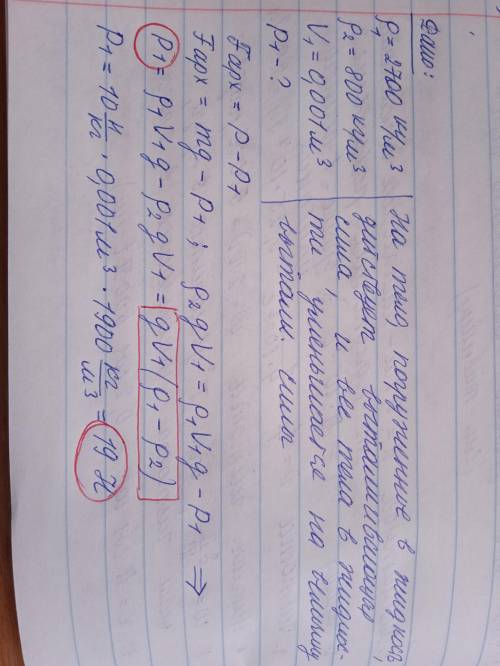 Дано:
ρ1 = 2700 кг/м³
ρ2 = 800 кг/м³
V1 = 0,001 м³
P1 - ?
На тело погруженное в жидкость,
действует выталкивающая
сила, и вес тела в жидкос-
ти уменьшается на
выталк. силы
Fарх = P - P1
Fарх = mg - P1 ; ρ2 g V1 = ρ1 V1 g - P1 ⇒
P1 = ρ1 V1 g - ρ2 g V1 = g V1 (ρ1 - ρ2)
P1 = 10 н/кг · 0,001 м³ · 1900 кг/м³ = 19 Н